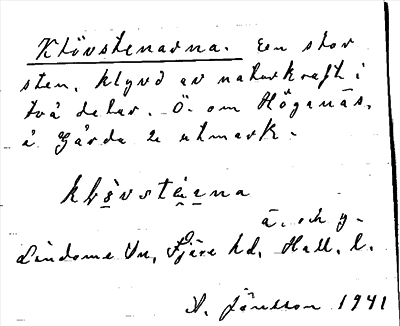 Klövstenarna. En stor
sten, klyvd av naturkraft i
två delar. Ö. om Höganäs,
å Gårda 2 utmark.
klö̀vstä̀ɳa
ä. och y.
Lindome sn, Fjäre hd, Hall. l.
A. Jönsson 1941